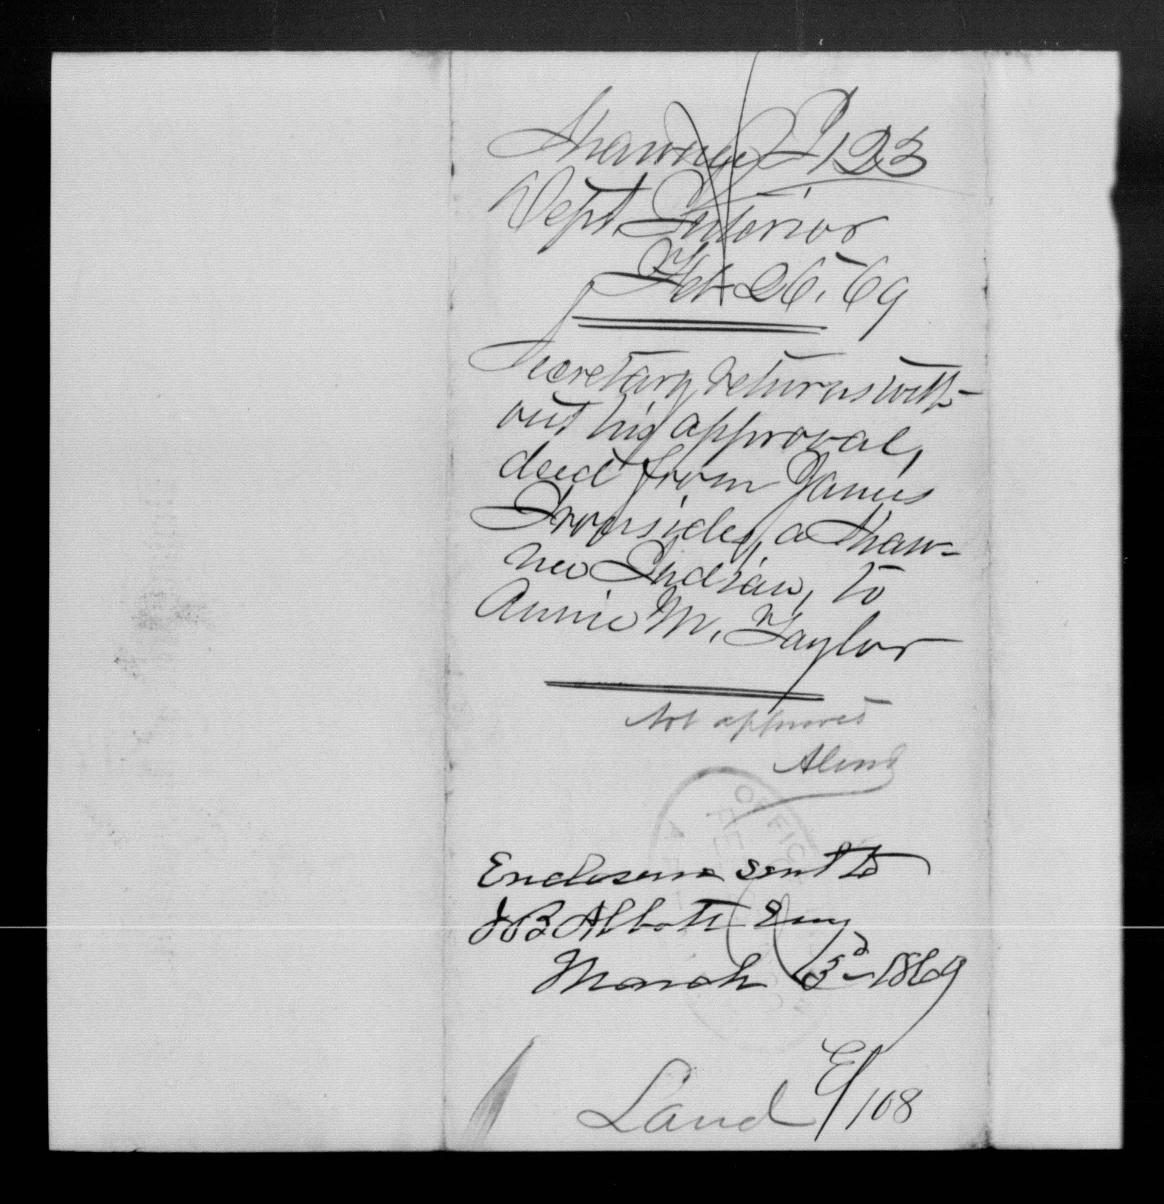 Shawnee I/123
Dept Interior
Feb 26, 69
Secretary returns with-
out his approval,
deed from James
Ironsides, a Shaw-
nee Indian, to
Annie M. Taylor
Not approved
Enclosure sent to
J B Abbott Esqr
March 3d 1869
OFFICE
Land E/108